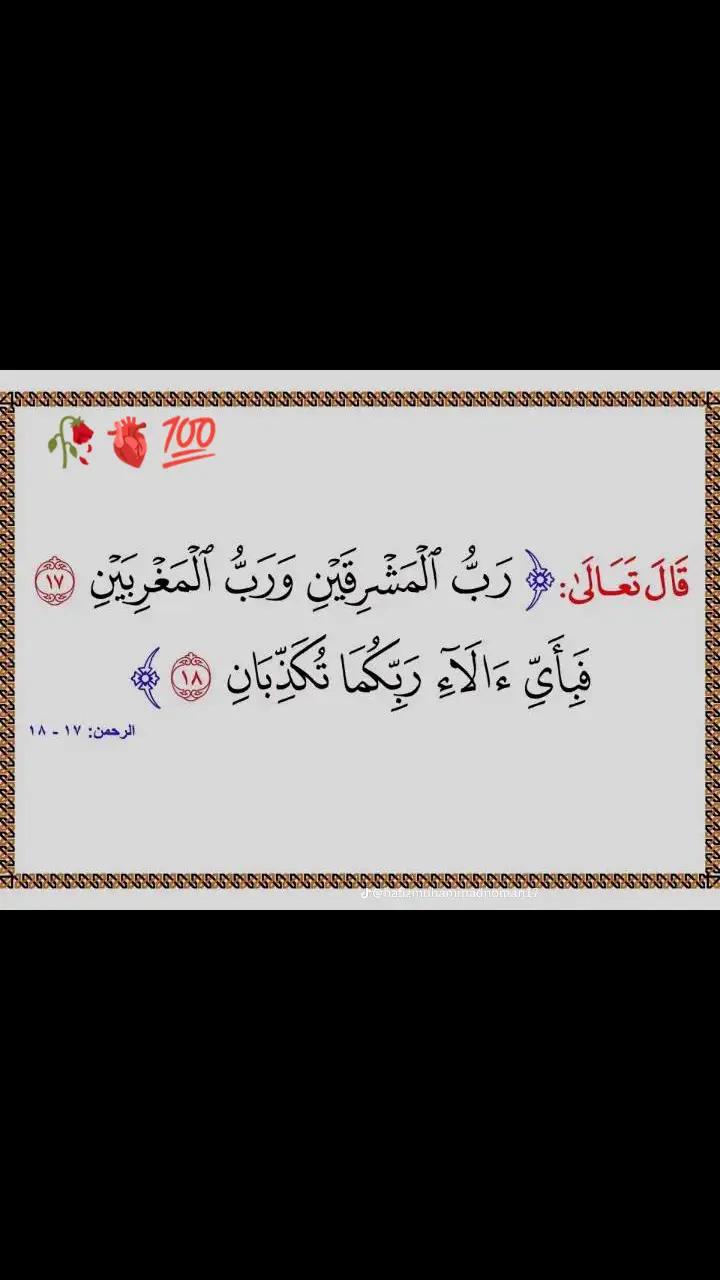 💯🫀🥀
قَالَ تَعَالَىٰ: ﴿ رَبُّ ٱلْمَشْرِقَيْنِ وَرَبُّ ٱلْمَغْرِبَيْنِ ١٧
فَبِأَيِّ ءَالَآءِ رَبِّكُمَا تُكَذِّبَانِ ١٨ ﴾
الرحمن: ١٧ - ١٨
@hafizmuhammadnoman17